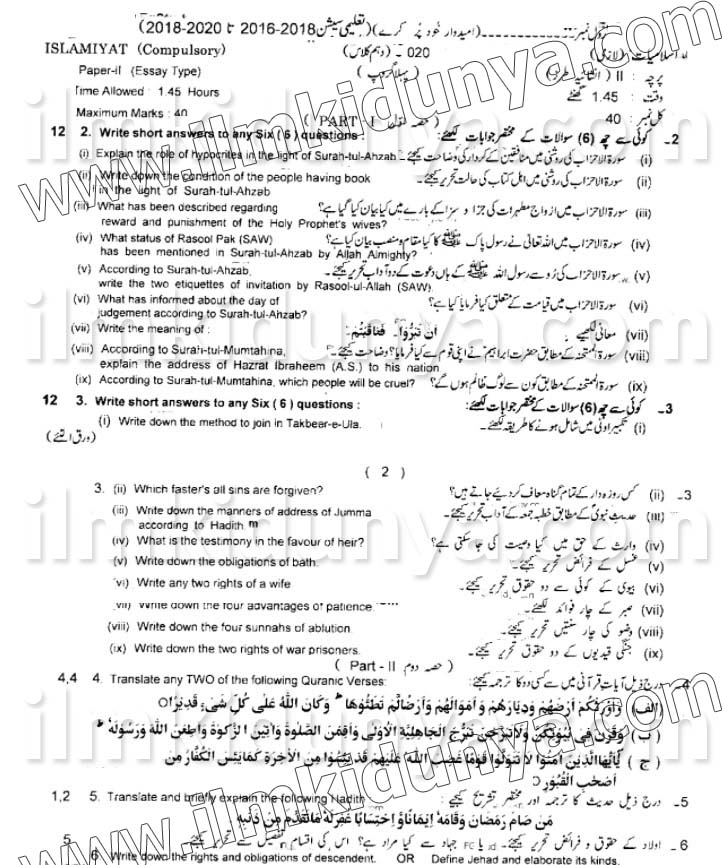 رول نمبر ---------(امیدوار خود پُر کرے)(تعلیمی سیشن 2018-2016 تا 2020-2018)
ISLAMIYAT (Compulsory) 020 - (دہم کلاس) اسلامیات (لازمی)
Paper-II (Essay Type) (پہلا گروپ) پرچہ : II (انشائیہ طرز)
Time Allowed : 1.45 Hours وقت : 1.45 گھنٹے
Maximum Marks : 40 کل نمبر : 40
(PART - I حصہ اول)
12 2. Write short answers to any Six ( 6 ) questions : 2- کوئی سے چھ (6) سوالات کے مختصر جوابات لکھئے:
(i) Explain the role of hypocrites in the light of Surah-tul-Ahzab (i) سورۃ الاحزاب کی روشنی میں منافقین کے کردار کی وضاحت کیجئے۔
(ii) Write down the condition of the people having book (ii) سورۃ الاحزاب کی روشنی میں اہل کتاب کی حالت تحریر کیجئے۔
in the light of Surah-tul-Ahzab
(iii) What has been described regarding (iii) سورۃ الاحزاب میں ازواج مطہرات کی جزا و سزا کے بارے میں کیا بیان کیا گیا ہے؟
reward and punishment of the Holy Prophet's wives?
(iv) What status of Rasool Pak (SAW) (iv) سورۃ الاحزاب میں اللہ تعالیٰ نے رسول پاک ﷺ کا کیا مقام و منصب بیان کیا ہے؟
has been mentioned in Surah-tul-Ahzab by Allah Almighty?
(v) According to Surah-tul-Ahzab, (v) سورۃ الاحزاب کی رُو سے رسول اللہ ﷺ کے ہاں دعوت کے دو آداب تحریر کیجئے۔
write the two etiquettes of invitation by Rasool-ul-Allah (SAW)
(vi) What has informed about the day of (vi) سورۃ الاحزاب میں قیامت کے متعلق کیا فرمایا گیا ہے؟
judgement according to Surah-tul-Ahzab?
(vii) Write the meaning of : (vii) معانی لکھیے : اَنْ تَبَرُّوْا۔ فَعَاقَبْتُمْ:
(viii) According to Surah-tul-Mumtahina, (viii) سورۃ الممتحنہ کے مطابق حضرت ابراہیمؑ نے اپنی قوم سے کیا فرمایا؟ وضاحت کیجئے۔
explain the address of Hazrat Ibraheem (A.S.) to his nation
(ix) According to Surah-tul-Mumtahina, which people will be cruel? (ix) سورۃ الممتحنہ کے مطابق کون سے لوگ ظالم ہوں گے؟
12 3. Write short answers to any Six ( 6 ) questions : 3- کوئی سے چھ (6) سوالات کے مختصر جوابات لکھئے:
(i) Write down the method to join in Takbeer-e-Ula. (i) تکبیر اولیٰ میں شامل ہونے کا طریقہ لکھئے۔
(ورق الٹئے)
( 2 )
3. (ii) Which faster's all sins are forgiven? 3- (ii) کس روزہ دار کے تمام گناہ معاف کر دیئے جاتے ہیں؟
(iii) Write down the manners of address of Jumma (iii) حدیث نبویؐ کے مطابق خطبہ جمعہ کے آداب تحریر کیجئے۔
according to Hadith.
(iv) What is the testimony in the favour of heir? (iv) وارث کے حق میں کیا وصیت کی جا سکتی ہے؟
(v) Write down the obligations of bath. (v) غسل کے فرائض تحریر کیجئے۔
(vi) Write any two rights of a wife (vi) بیوی کے کوئی سے دو حقوق تحریر کیجئے۔
(vii) Write down the four advantages of patience. (vii) صبر کے چار فوائد لکھئے۔
(viii) Write down the four sunnahs of ablution. (viii) وضو کی چار سنتیں تحریر کیجئے۔
(ix) Write down the two rights of war prisoners. (ix) جنگی قیدیوں کے دو حقوق تحریر کیجئے۔
( Part - II حصہ دوم )
4,4 4. Translate any TWO of the following Quranic Verses: 4- درج ذیل آیات قرآنی میں سے کسی دو کا ترجمہ کیجئے:
(الف) وَاَوْرَثَكُمْ اَرْضَهُمْ وَدِيَارَهُمْ وَاَمْوَالَهُمْ وَاَرْضًا لَّمْ تَطَئُوْهَا ؕ وَكَانَ اللّٰهُ عَلٰى كُلِّ شَىْءٍ قَدِيْرًا○
(ب) وَقَرْنَ فِىْ بُيُوْتِكُنَّ وَلَا تَبَرَّجْنَ تَبَرُّجَ الْجَاهِلِيَّةِ الْاُوْلٰى وَاَقِمْنَ الصَّلٰوةَ وَاٰتِيْنَ الزَّكٰوةَ وَاَطِعْنَ اللّٰهَ وَرَسُوْلَهٗ ؕ
(ج) يٰۤاَيُّهَا الَّذِيْنَ اٰمَنُوْا لَا تَتَوَلَّوْا قَوْمًا غَضِبَ اللّٰهُ عَلَيْهِمْ قَدْ يَئِسُوْا مِنَ الْاٰخِرَةِ كَمَا يَئِسَ الْكُفَّارُ مِنْ
اَصْحٰبِ الْقُبُوْرِ○
1,2 5. Translate and briefly explain the following Hadith: 5- درج ذیل حدیث کا ترجمہ اور مختصر تشریح کیجئے:
مَنْ صَامَ رَمَضَانَ وَقَامَهٗ اِيْمَانًا وَّ اِحْتِسَابًا غُفِرَ لَهٗ مَا تَقَدَّمَ مِنْ ذَنْبِهٖ
5 6. Write down the rights and obligations of descendent. OR Define Jehad and elaborate its kinds. 6- اولاد کے حقوق و فرائض تحریر کیجئے۔ یا جہاد سے کیا مراد ہے؟ اس کی اقسام تفصیل سے تحریر کیجئے۔
www.ilmkidunya.com
ilmkidunya.com
www.ilmkidunya.com
ilmkidunya.com
www.ilmkidunya.com